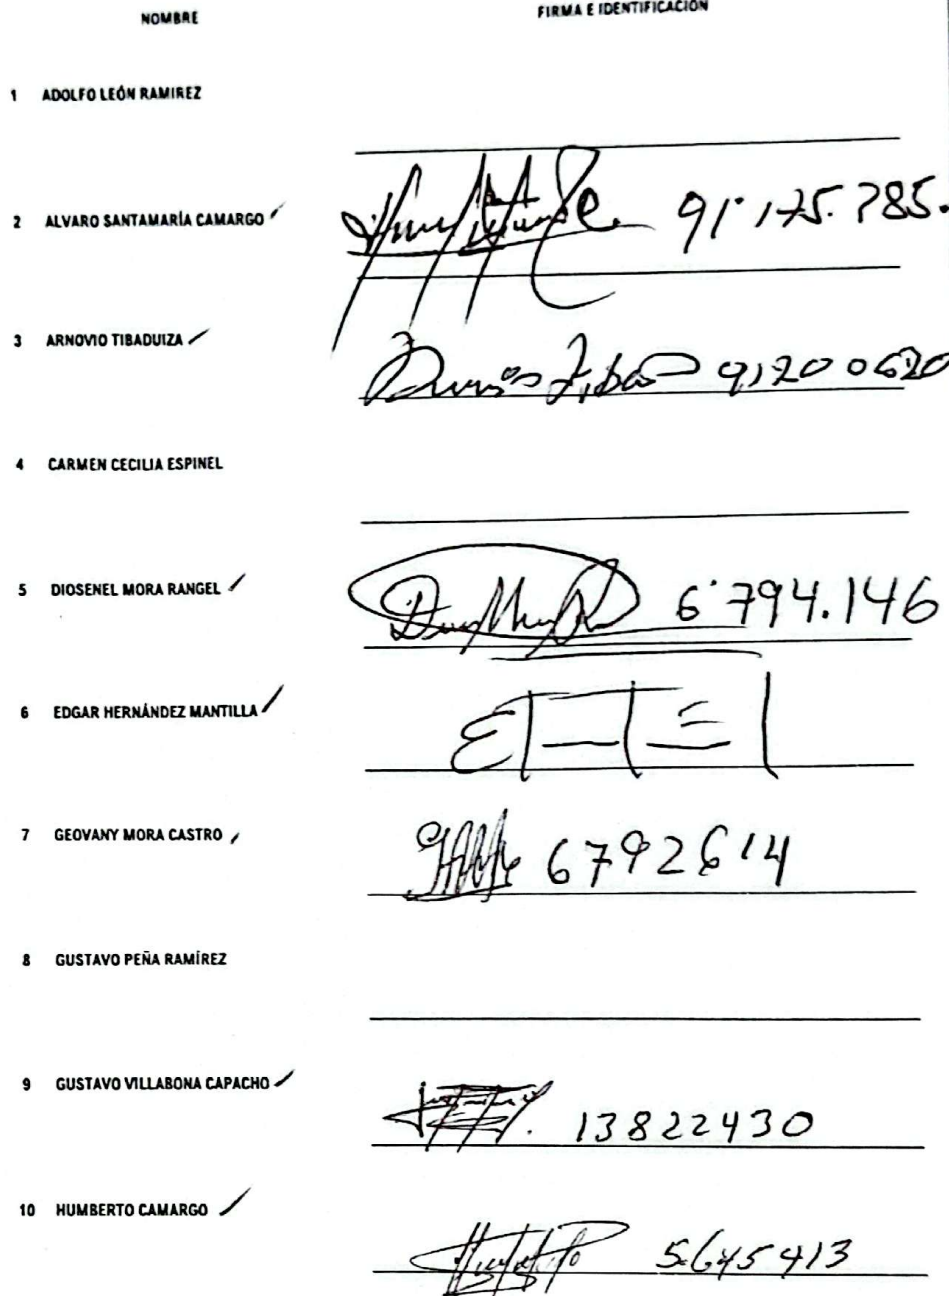 NOMBRE FIRMA E IDENTIFICACIÓN
1 ADOLFO LEÓN RAMIREZ
2 ALVARO SANTAMARÍA CAMARGO 91'175.785.
3 ARNOVIO TIBADUIZA 91200620
4 CARMEN CECILIA ESPINEL
5 DIOSENEL MORA RANGEL 6'794.146
6 EDGAR HERNÁNDEZ MANTILLA
7 GEOVANY MORA CASTRO 6792614
8 GUSTAVO PEÑA RAMÍREZ
9 GUSTAVO VILLABONA CAPACHO 13822430
10 HUMBERTO CAMARGO 5.645413